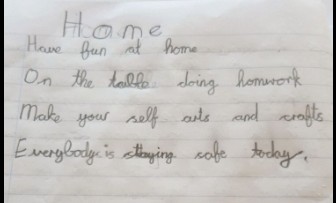 Home
Have fun at home
On the table doing homework
Make your self arts and crafts
Everybody is staying safe today.